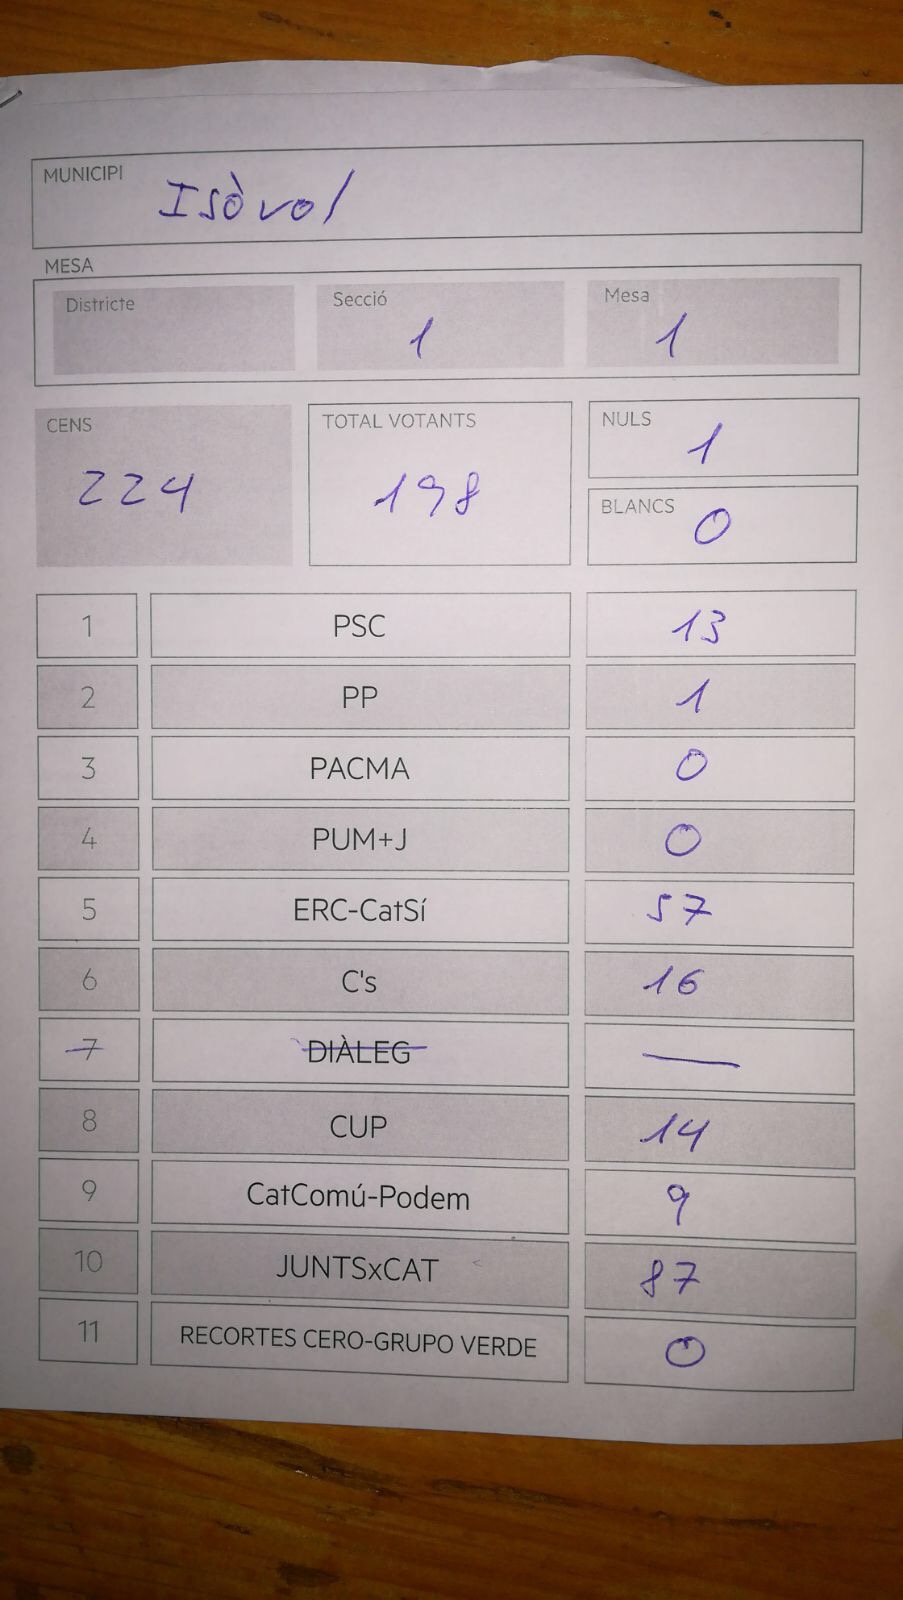 MUNICIPI Isòvol
MESA
Districte Secció 1 Mesa 1
CENS 224 TOTAL VOTANTS 198 NULS 1
BLANCS 0
1 PSC 13
2 PP 1
3 PACMA 0
4 PUM+J 0
5 ERC-CatSí 57
6 C's 16
7 DIÀLEG —
8 CUP 14
9 CatComú-Podem 9
10 JUNTSxCAT 87
11 RECORTES CERO-GRUPO VERDE 0